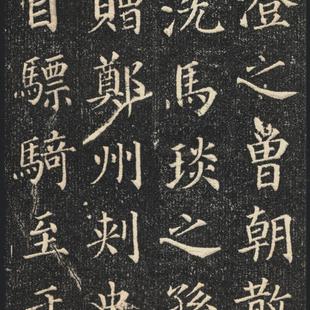 澄之曾朝散
洗馬琰之孫
贈鄭州刺史
驃騎至